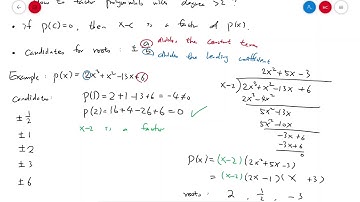 How to factor polynomials with degree ≥ 2 ?
• if p(c)=0, then x-c is a factor of p(x).
• Candidates for roots : ± a divides the constant term
b divides the leading coefficient
Example : p(x) = 2x³+x²-13x+6
Candidates :
± 1/2
± 1
± 2
± 3
± 6
p(1) = 2+1-13+6 = -4 ≠0
p(2) = 16+4-26+6 = 0 ✓
x-2 is a factor
2x²+5x-3
x-2 2x³+x²-13x+6
2x³-4x²
5x²-13x
5x²-10x
-3x+6
-3x+6
0
p(x) = (x-2)(2x²+5x-3)
= (x-2)(2x-1)(x+3)
roots: 2, 1/2, -3